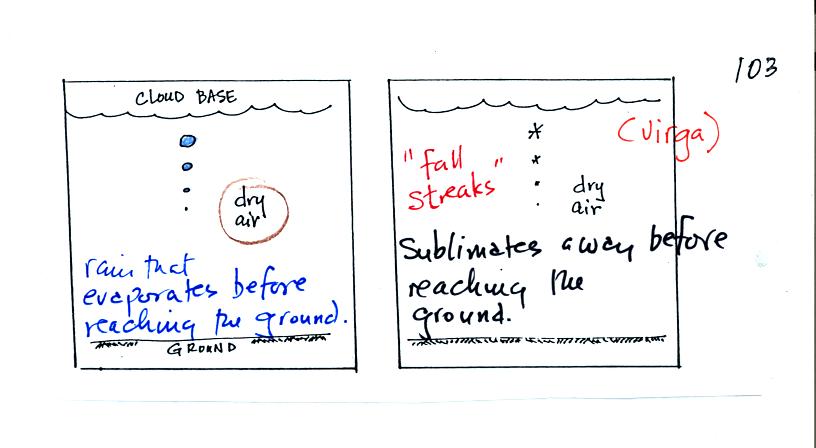 103
CLOUD BASE
dry
air
rain that
evaporates before
reaching the ground.
GROUND
(virga)
"fall "
streaks"
dry
air
Sublimates away before
reaching the
ground.